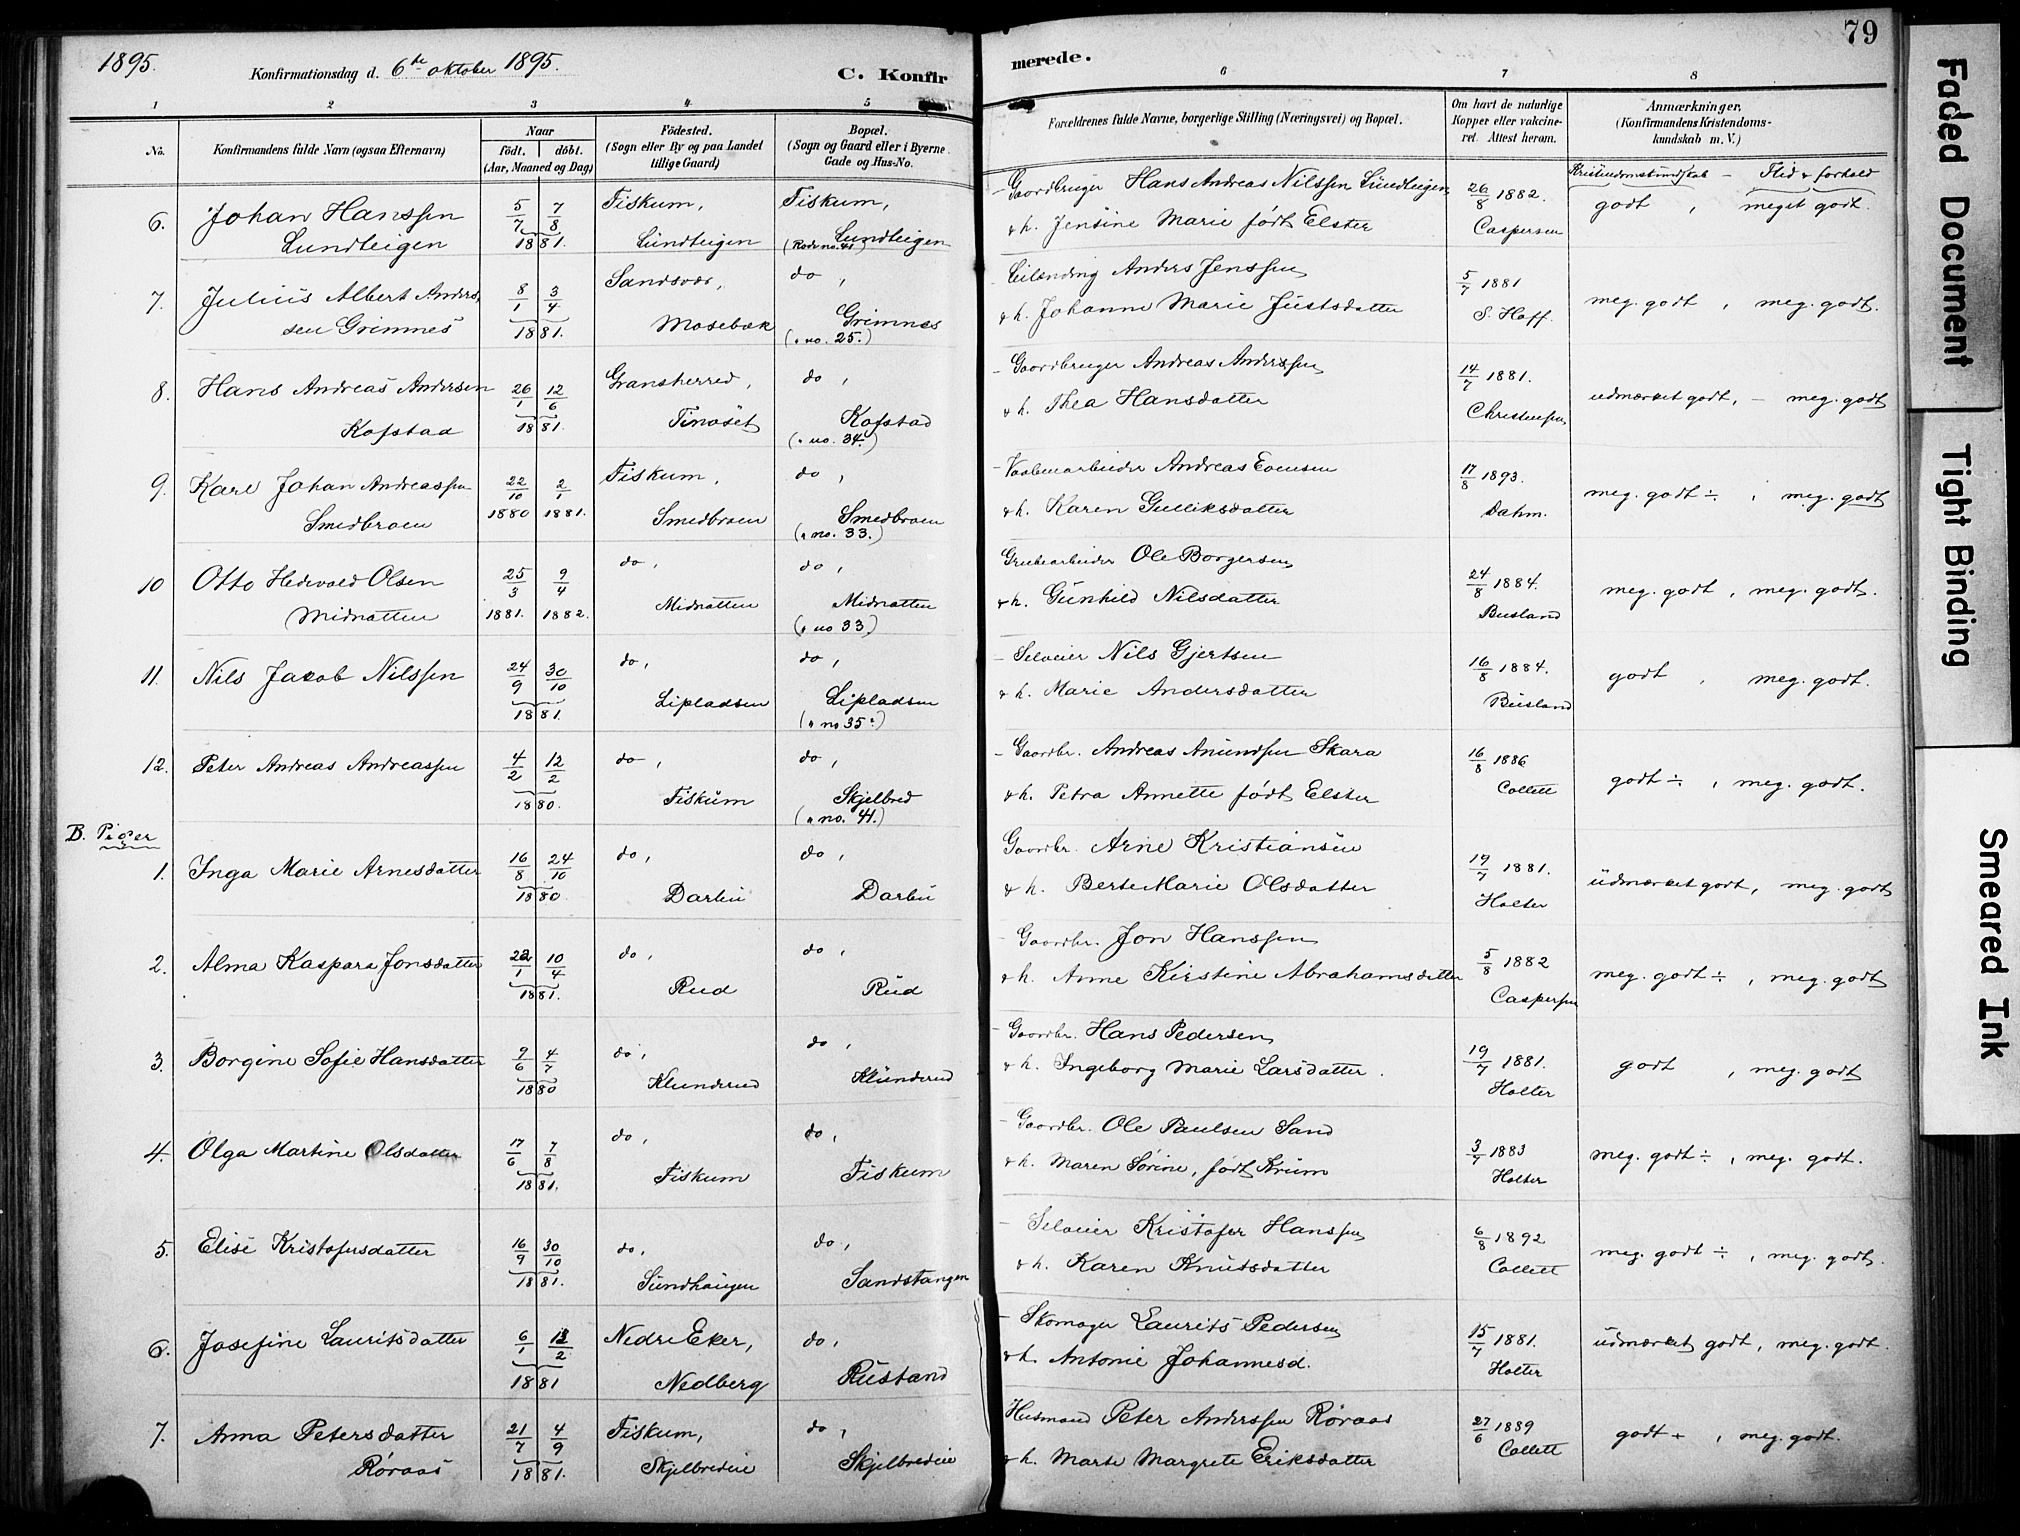 1895.
Konfirmationsdag d. 6te oktober 1895.
C. Konfir
merede.
79
1 2 3 4 5 6 7 8
No.
Konfirmandens fulde Navn (ogsaa Efternavn)
Naar
födt. döbt.
(Aar, Maaned og Dag)
Födested.
(Sogn eller By og paa Landet
tillige Gaard)
Bopæl.
(Sogn og Gaard eller i Byerne
Gade og Hus-No.
Forældrenes fulde Navne, borgerlige Stilling (Næringsvei) og Bopæl.
Om havt de naturlige
Kopper eller vakcine-
ret. Attest herom.
Anmærkninger,
(Konfirmandens Kristendoms-
kundskab m. V.)
Kristendomskundskab – Flid & forhold
6. Johan Hanssen 5/7 7/8 Fiskum, Fiskum, – Gaardbruger Hans Andreas Nilssen Lundteigen 26/8 1882. godt , meget godt.
Lundteigen 1881. Lundteigen Lundteigen (Rode no. 41) & h. Jensine Marie født Elster Caspersen
7. Julius Albert Anders- 8/1 3/4 Sandsvær, do , Anders Jenssen 5/7 1881 meg. godt , meg. godt.
sen Grimnes 1881. Mosebæk Grimnes (" no. 25.) & h. Johanne Marie Justsdatter S. Hoff.
8. Hans Andreas Andersen 26/1 12/6 Gransherred, do , – Gaardbruger Andreas Anderssen 14/7 1881. udmærket godt, – meg. godt
Kofstad 1881. Tinoset Kofstad (" no. 34.) & h. Thea Hansdatter Christensen
9. Karl Johan Andreassen 22/10 2/1 Fiskum, do , – Vaabenarbeider Andreas Evensen 17/8 1893. meg. godt ÷ , meg. godt
Smedbraen 1880 1881. Smedbraen Smedbraen (" no. 33.) & h. Karen Gulliksdatter Dahm.
10 Otto Hedevald Olsen 25/3 9/4 do , do , Grubearbeider Ole Borgersen 24/8 1884. meg. godt , meg. godt.
Midnatten 1881. 1882. Midnatten Midnatten (" no 33) & h. Gunhild Nilsdatter Busland
11. Nils Jacob Nilssen 24/9 30/10 do , do , – Selveier Nils Gjertsen 16/8 1884. godt , meg. godt.
1881. Lipladsen Lipladsen (" no 35.) & h. Marie Andersdatter Busland
12. Peter Andreas Andreassen 4/2 12/2 do , do , – Gaardbr. Andreas Amundsen Skara 16/8 1886 godt ÷ , meg. godt.
1880. Fiskum Skjelbred (" no. 41.) & h. Petra Annette født Elster Collett
B. Piger
1. Inga Marie Arnesdatter 16/8 24/10 do , do , Gaardbr. Arne Kristiansen 19/7 1881. udmærket godt, meg. godt
1880. Darbu Darbu & h. Berte Marie Olsdatter Holter
2. Alma Kaspara Jonsdatter 22/1 10/4 do , do , – Gaardbr. Jon Hanssen 5/8 1882 meg. godt ÷ , meg. godt
1881. Rud Rud & h. Anne Kirstine Abrahamsdatter Caspersen
3. Borgine Sofie Hansdatter 9/6 4/7 do , do , – Gaardbr. Hans Pedersen 19/7 1881. godt , meg. godt
1880 Klunderud Klunderud & h. Ingeborg Marie Larsdatter. Holter
4. Olga Martine Olsdatter 17/6 7/8 do , do , – Gaardbr. Ole Paulsen Sand 3/7 1883 meg. godt ÷ , meg. godt.
1881. Fiskum Fiskum & h. Maren Sørine, født Krum Holter
5. Elise Kristofersdatter 16/9 30/10 do , do , – Selveier Kristofer Hanssen 6/8 1892 meg. godt ÷ , meg. godt.
1881. Sundhaugen Sandstangen & h. Karen Knutsdatter Collett
6. Josefine Lauritsdatter 6/1 13/2 Nedre Eker, do , – Skomager Laurits Pedersen 15/7 1881. udmærket godt, meg. godt.
1881 Nedberg Rustand & h. Antonie Johannesd. Holter
7. Anna Petersdatter 21/7 4/9 Fiskum, do , Husmand Peter Anderssen Røraas 27/6 1889 godt + , meg. godt.
Røraas 1881. Skjelbredeie Skjelbredeie & h. Marte Margrete Eriksdatter Collett
Faded Document
Tight Binding
Smeared Ink